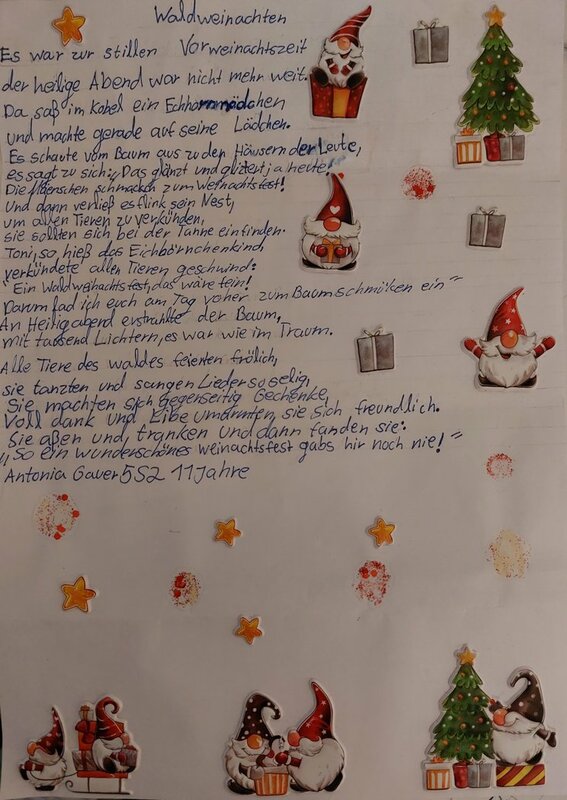 Waldweinachten
Es war zur stillen Vorweinachtszeit
der heilige Abend war nicht mehr weit.
Da saß im Kobel ein Echhornmädchen
und machte gerade auf seine Lädchen.
Es schaute vom Baum aus zu den Häusern der Leute,
es sagt zu sich: „Das glänzt und glitzert ja heute!
Die Menschen schmücken zum Weihnachtsfest!
Und dann verließ es flink sein Nest,
um allen Tieren zu verkünden,
sie sollten sich bei der Tanne einfinden.
Toni, so hieß das Eichhörnchenkind,
verkündete allen Tieren geschwind:
"Ein Waldweihachtsfest, das wäre fein!
Darum lad ich euch am Tag voher zum Baumschmüken ein"
An Heiligabend erstrahlte der Baum,
mit tausend Lichtern, es war wie im Traum.
Alle Tiere des waldes feierten frölich,
sie tanzten und sangen Lieder so selig,
Sie machten sich gegenseitig Geschenke,
Voll dank und Liebe umarmten sie sich freundlich.
Sie aßen und, tranken und dann fanden sie:
„So ein wunderschönes weinachtsfest gabs hir noch nie!"
Antonia Gauer 5S2 11 Jahre